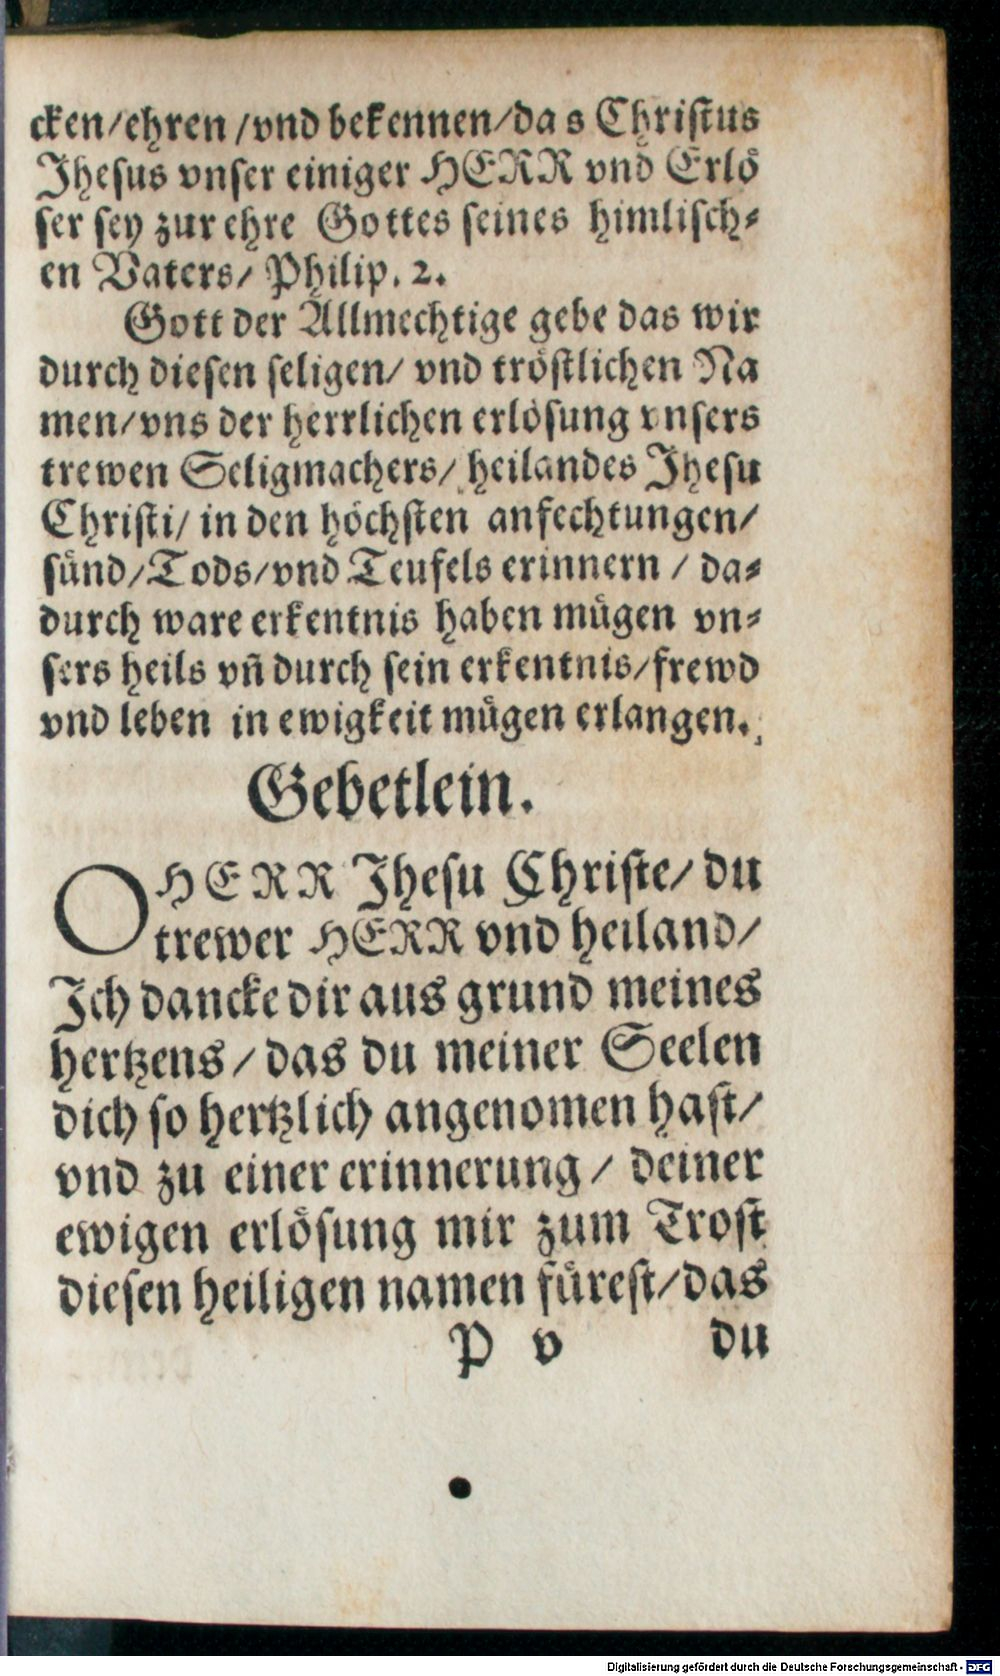 cken/ehren /vnd bekennen/das Christus
Jhesus vnser einiger HERR vnd Erlö
ser sey zur ehre Gottes seines himlisch⸗
en Vaters/ Philip. 2.
Gott der Allmechtige gebe das wir
durch diesen seligen/ vnd tröstlichen Na
men/vns der herrlichen erlösung vnsers
trewen Seligmachers/ heilandes Jhesu
Christi/ in den höchsten anfechtungen/
sünd/Tods/vnd Teufels erinnern / da⸗
durch ware erkentnis haben mügen vn⸗
sers heils vñ durch sein erkentnis/frewd
vnd leben in ewigkeit mügen erlangen.
Gebetlein.
O HERR Jhesu Christe/ du
trewer HERR vnd heiland/
Ich dancke dir aus grund meines
hertzens/ das du meiner Seelen
dich so hertzlich angenomen hast/
vnd zu einer erinnerung/ deiner
ewigen erlösung mir zum Trost
diesen heiligen namen fürest/das
P v du
Digitalisierung gefördert durch die Deutsche Forschungsgemeinschaft - DFG